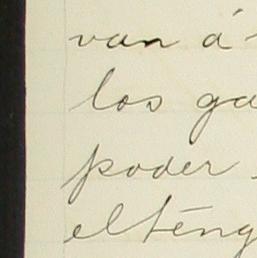 van á
los ga
poder
elténg